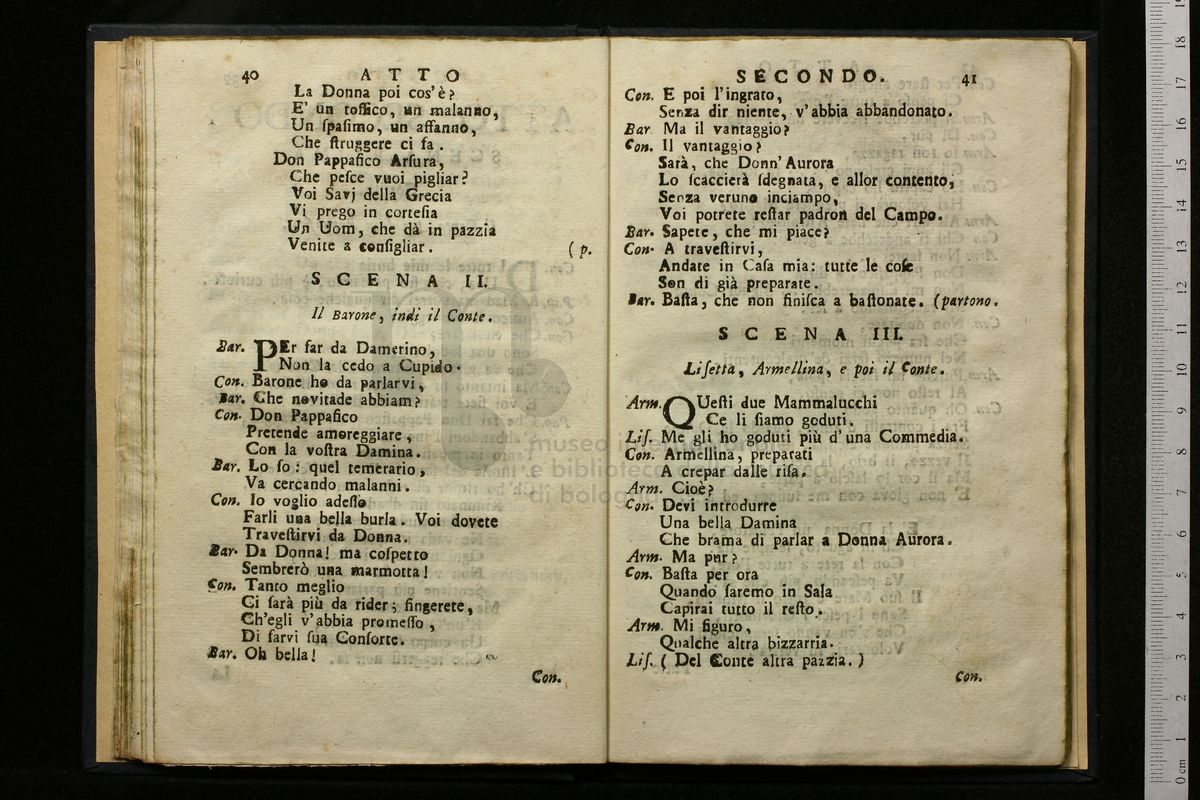 40 ATTO
La Donna poi cos'è?
E' un toſſico, un malanno,
Un ſpaſimo, un affanno,
Che ſtruggere ci fa.
Don Pappafico Arſura,
Che peſce vuoi pigliar?
Voi Savj della Grecia
Vi prego in corteſia
Un Uom, che dà in pazzia
Venite a conſigliar. (p.
SCENA II.
Il Barone, indi il Conte.
Bar. PEr far da Damerino,
Non la cedo a Cupido.
Con. Barone ho da parlarvi,
Bar. Che novitade abbiam?
Con. Don Pappafico
Pretende amoreggiare,
Con la voſtra Damina.
Bar. Lo ſo: quel temerario,
Va cercando malanni.
Con. Io voglio adeſſo
Farli una bella burla. Voi dovete
Traveſtirvi da Donna.
Bar. Da Donna! ma coſpetto
Sembrerò una marmotta!
Con. Tanto meglio
Ci ſarà più da rider; fingerete,
Ch'egli v'abbia promeſſo,
Di farvi ſua Conſorte.
Bar. Oh bella!
Con.
SECONDO. 41
Con. E poi l'ingrato,
Senza dir niente, v'abbia abbandonato.
Bar. Ma il vantaggio?
Con. Il vantaggio?
Sarà, che Donn'Aurora
Lo ſcaccierà ſdegnata, e allor contento,
Senza veruno inciampo,
Voi potrete reſtar padron del Campo.
Bar. Sapete, che mi piace?
Con. A traveſtirvi,
Andate in Caſa mia: tutte le coſe
Son di già preparate.
Bar. Baſta, che non finiſca a baſtonate. (partono.
SCENA III.
Liſetta, Armellina, e poi il Conte.
Arm. QUeſti due Mammalucchi
Ce li ſiamo goduti.
Liſ. Me gli ho goduti più d'una Commedia.
Con. Armellina, preparati
A crepar dalle riſa.
Arm. Cioè?
Con. Devi introdurre
Una bella Damina
Che brama di parlar a Donna Aurora.
Arm. Ma pur?
Con. Baſta per ora
Quando ſaremo in Sala
Capirai tutto il reſto.
Arm. Mi figuro,
Qualche altra bizzarria.
Liſ. ( Del Conte altra pazzia. )
Con.